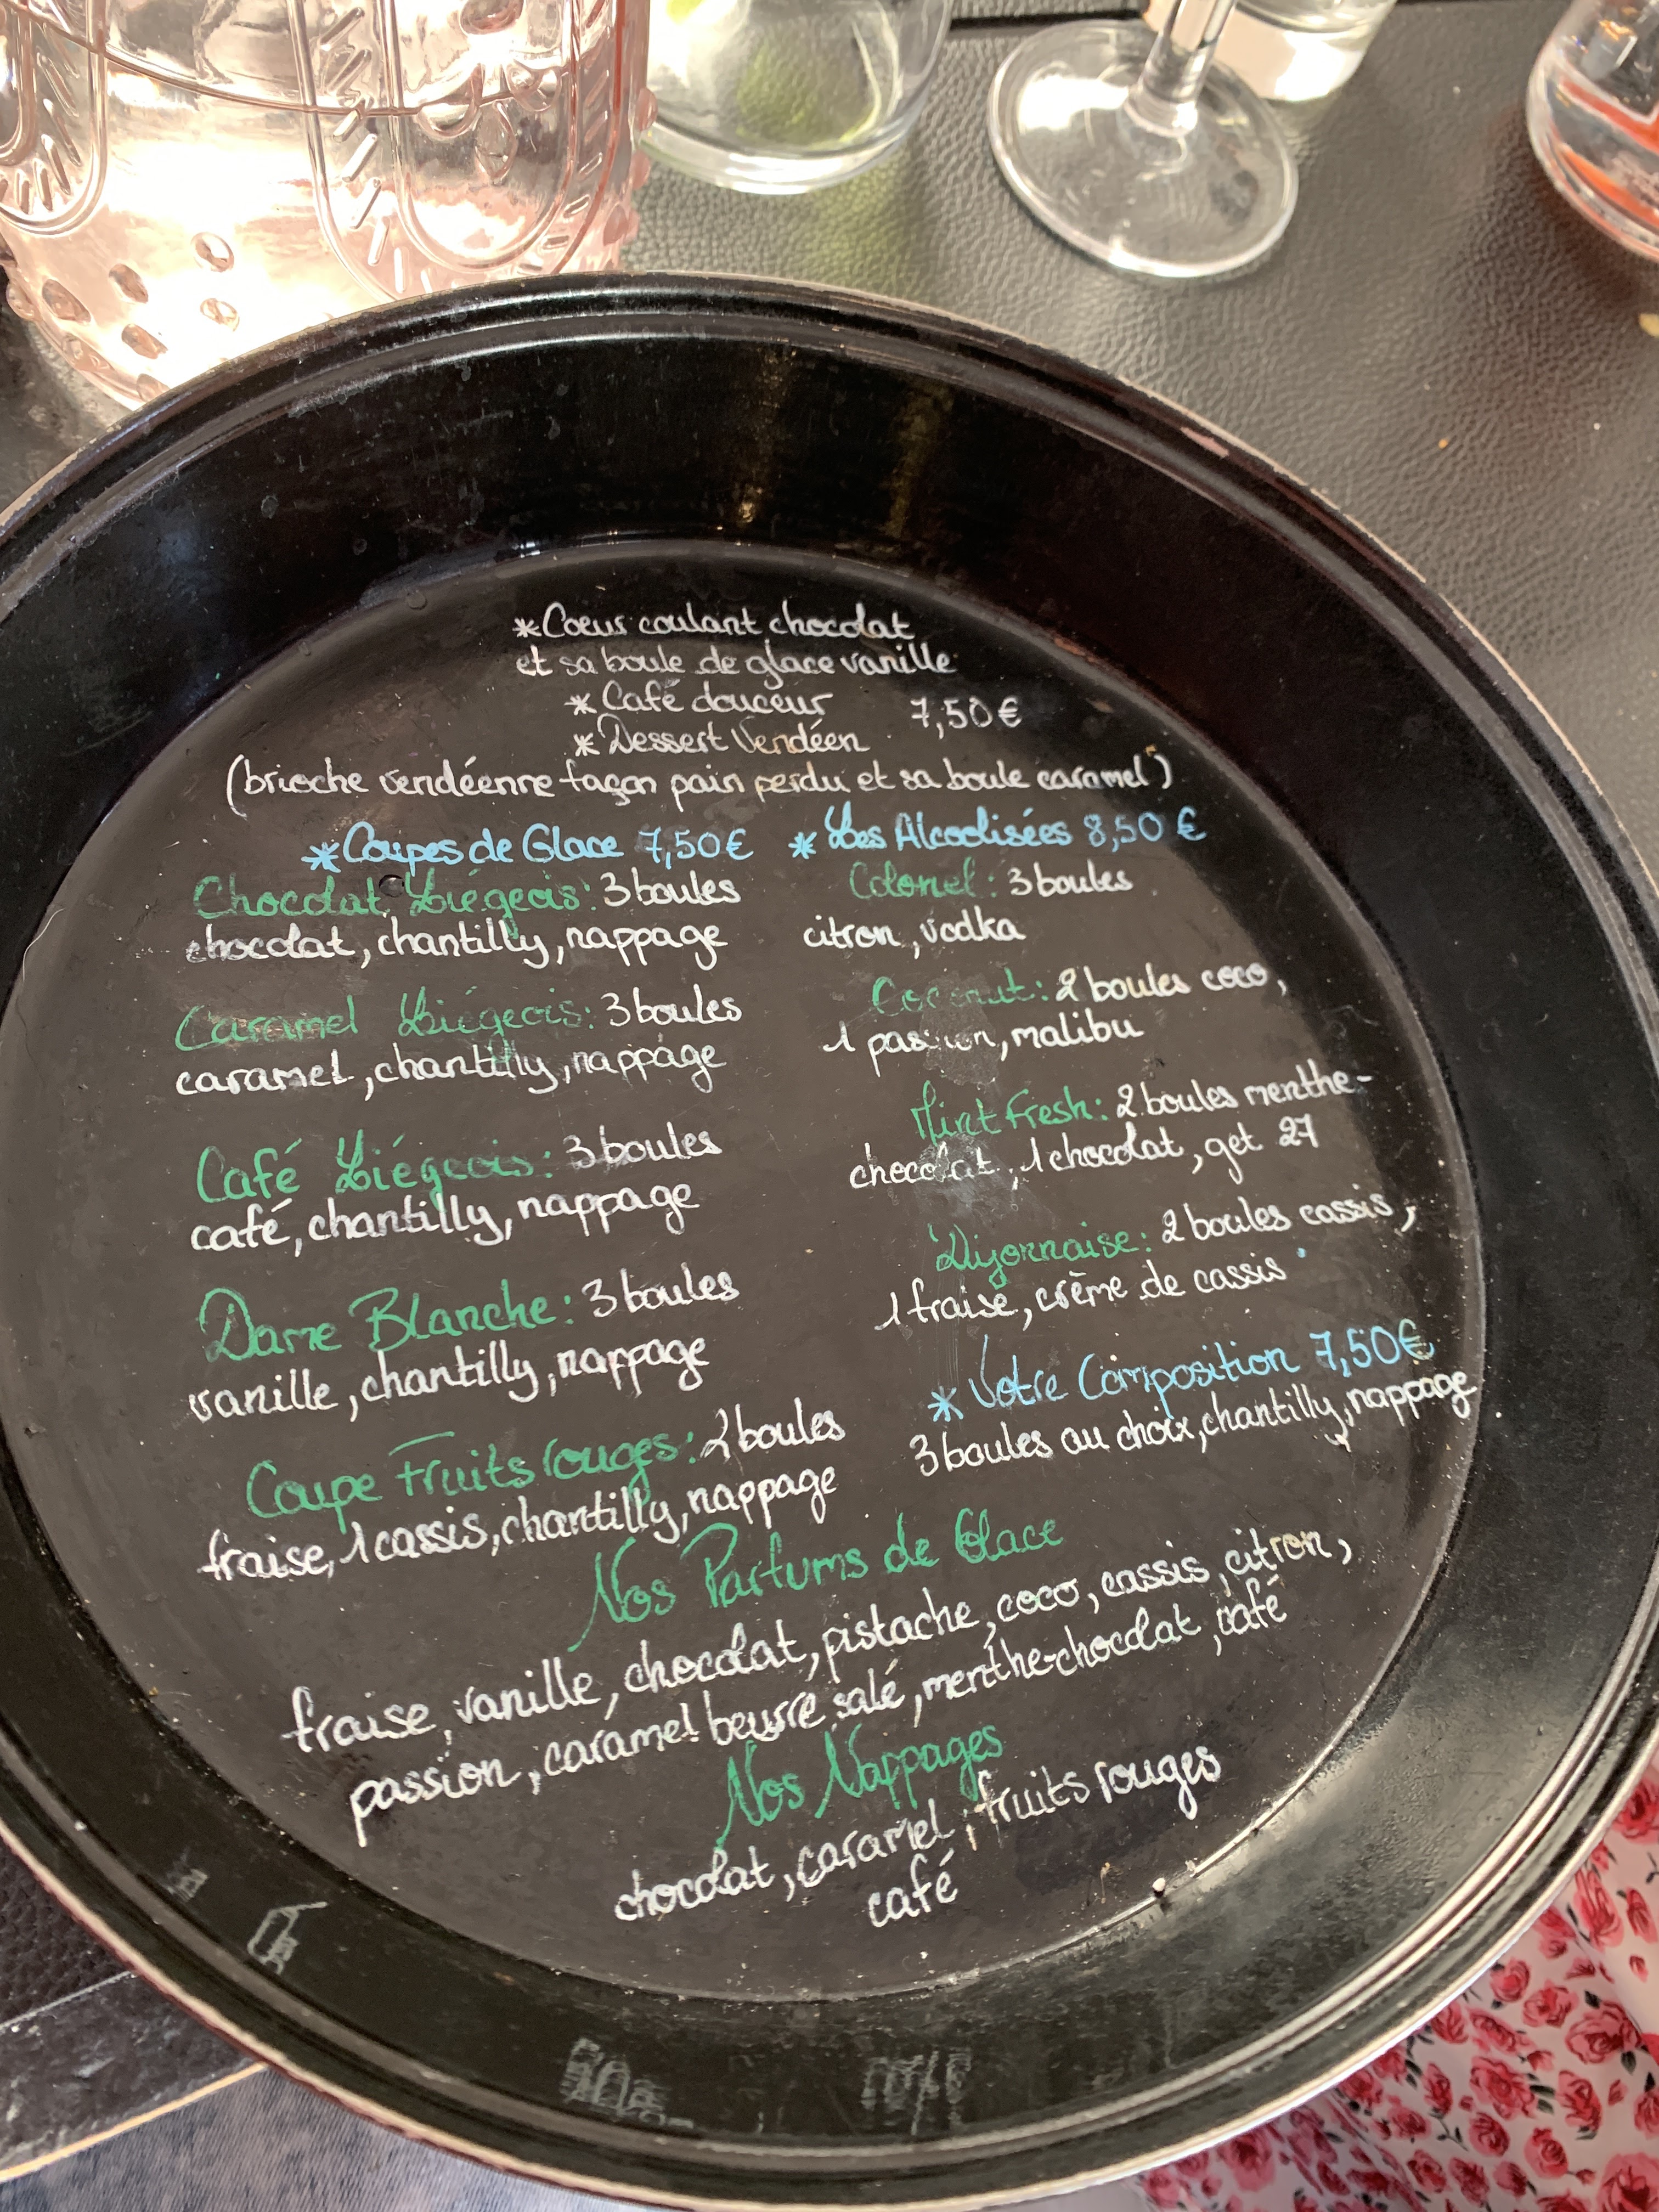 *Coeur coulant chocolat
et sa boule de glace vanille
*Café douceur 7,50€
*Dessert Vendéen
(brioche vendéenne façon pain perdu et sa boule caramel)
*Coupes de Glace 7,50€
Chocolat Liégeois: 3 boules
chocolat, chantilly, nappage
Caramel Liégeois: 3 boules
caramel, chantilly, nappage
Café Liégeois: 3 boules
café, chantilly, nappage
Dame Blanche: 3 boules
vanille, chantilly, nappage
Coupe Fruits rouges: 2 boules
fraise, 1 cassis, chantilly, nappage
*Les Alcoolisées 8,50 €
Colonel: 3 boules
citron, vodka
Coconut: 2 boules coco,
1 passion, malibu
Mint Fresh: 2 boules menthe-
chocolat, 1 chocolat, get 27
Dijonnaise: 2 boules cassis,
1 fraise, crème de cassis
*Votre Composition 7,50€
3 boules au choix, chantilly, nappage
Nos Parfums de Glace
fraise, vanille, chocolat, pistache, coco, cassis, citron,
passion, caramel beurre salé, menthe-chocolat, café
Nos Nappages
chocolat, caramel, fruits rouges
café